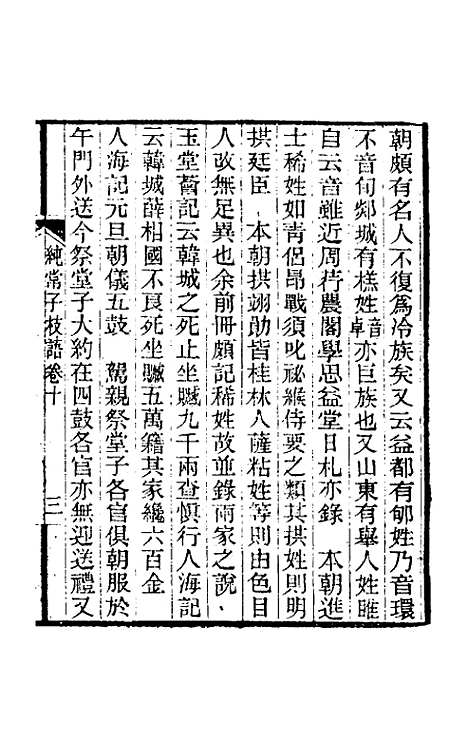 朝頗有名人不復爲冷族矣又云益都有郇姓乃音環
不音旬郯城有榚姓音卓亦巨族也又山東有舉人姓睢
自云音雖近周荇農閣學思益堂日札亦錄　本朝進
士稀姓如靑侶昂戰須叱祕緱侍要之類其拱姓則明
拱廷臣　本朝拱翊勛皆桂林人薩粘姓等則由色目
人改無足異也余前冊頗記稀姓故並錄兩家之說
玉堂薈記云韓城之死止坐贓九千兩查愼行人海記
云韓城薛相國不良死坐贓五萬籍其家纔六百金
人海記元旦朝儀五鼓　駕親祭堂子各官俱朝服於
午門外送今祭堂子大約在四鼓各官亦無迎送禮又
純常子枝語卷十　三